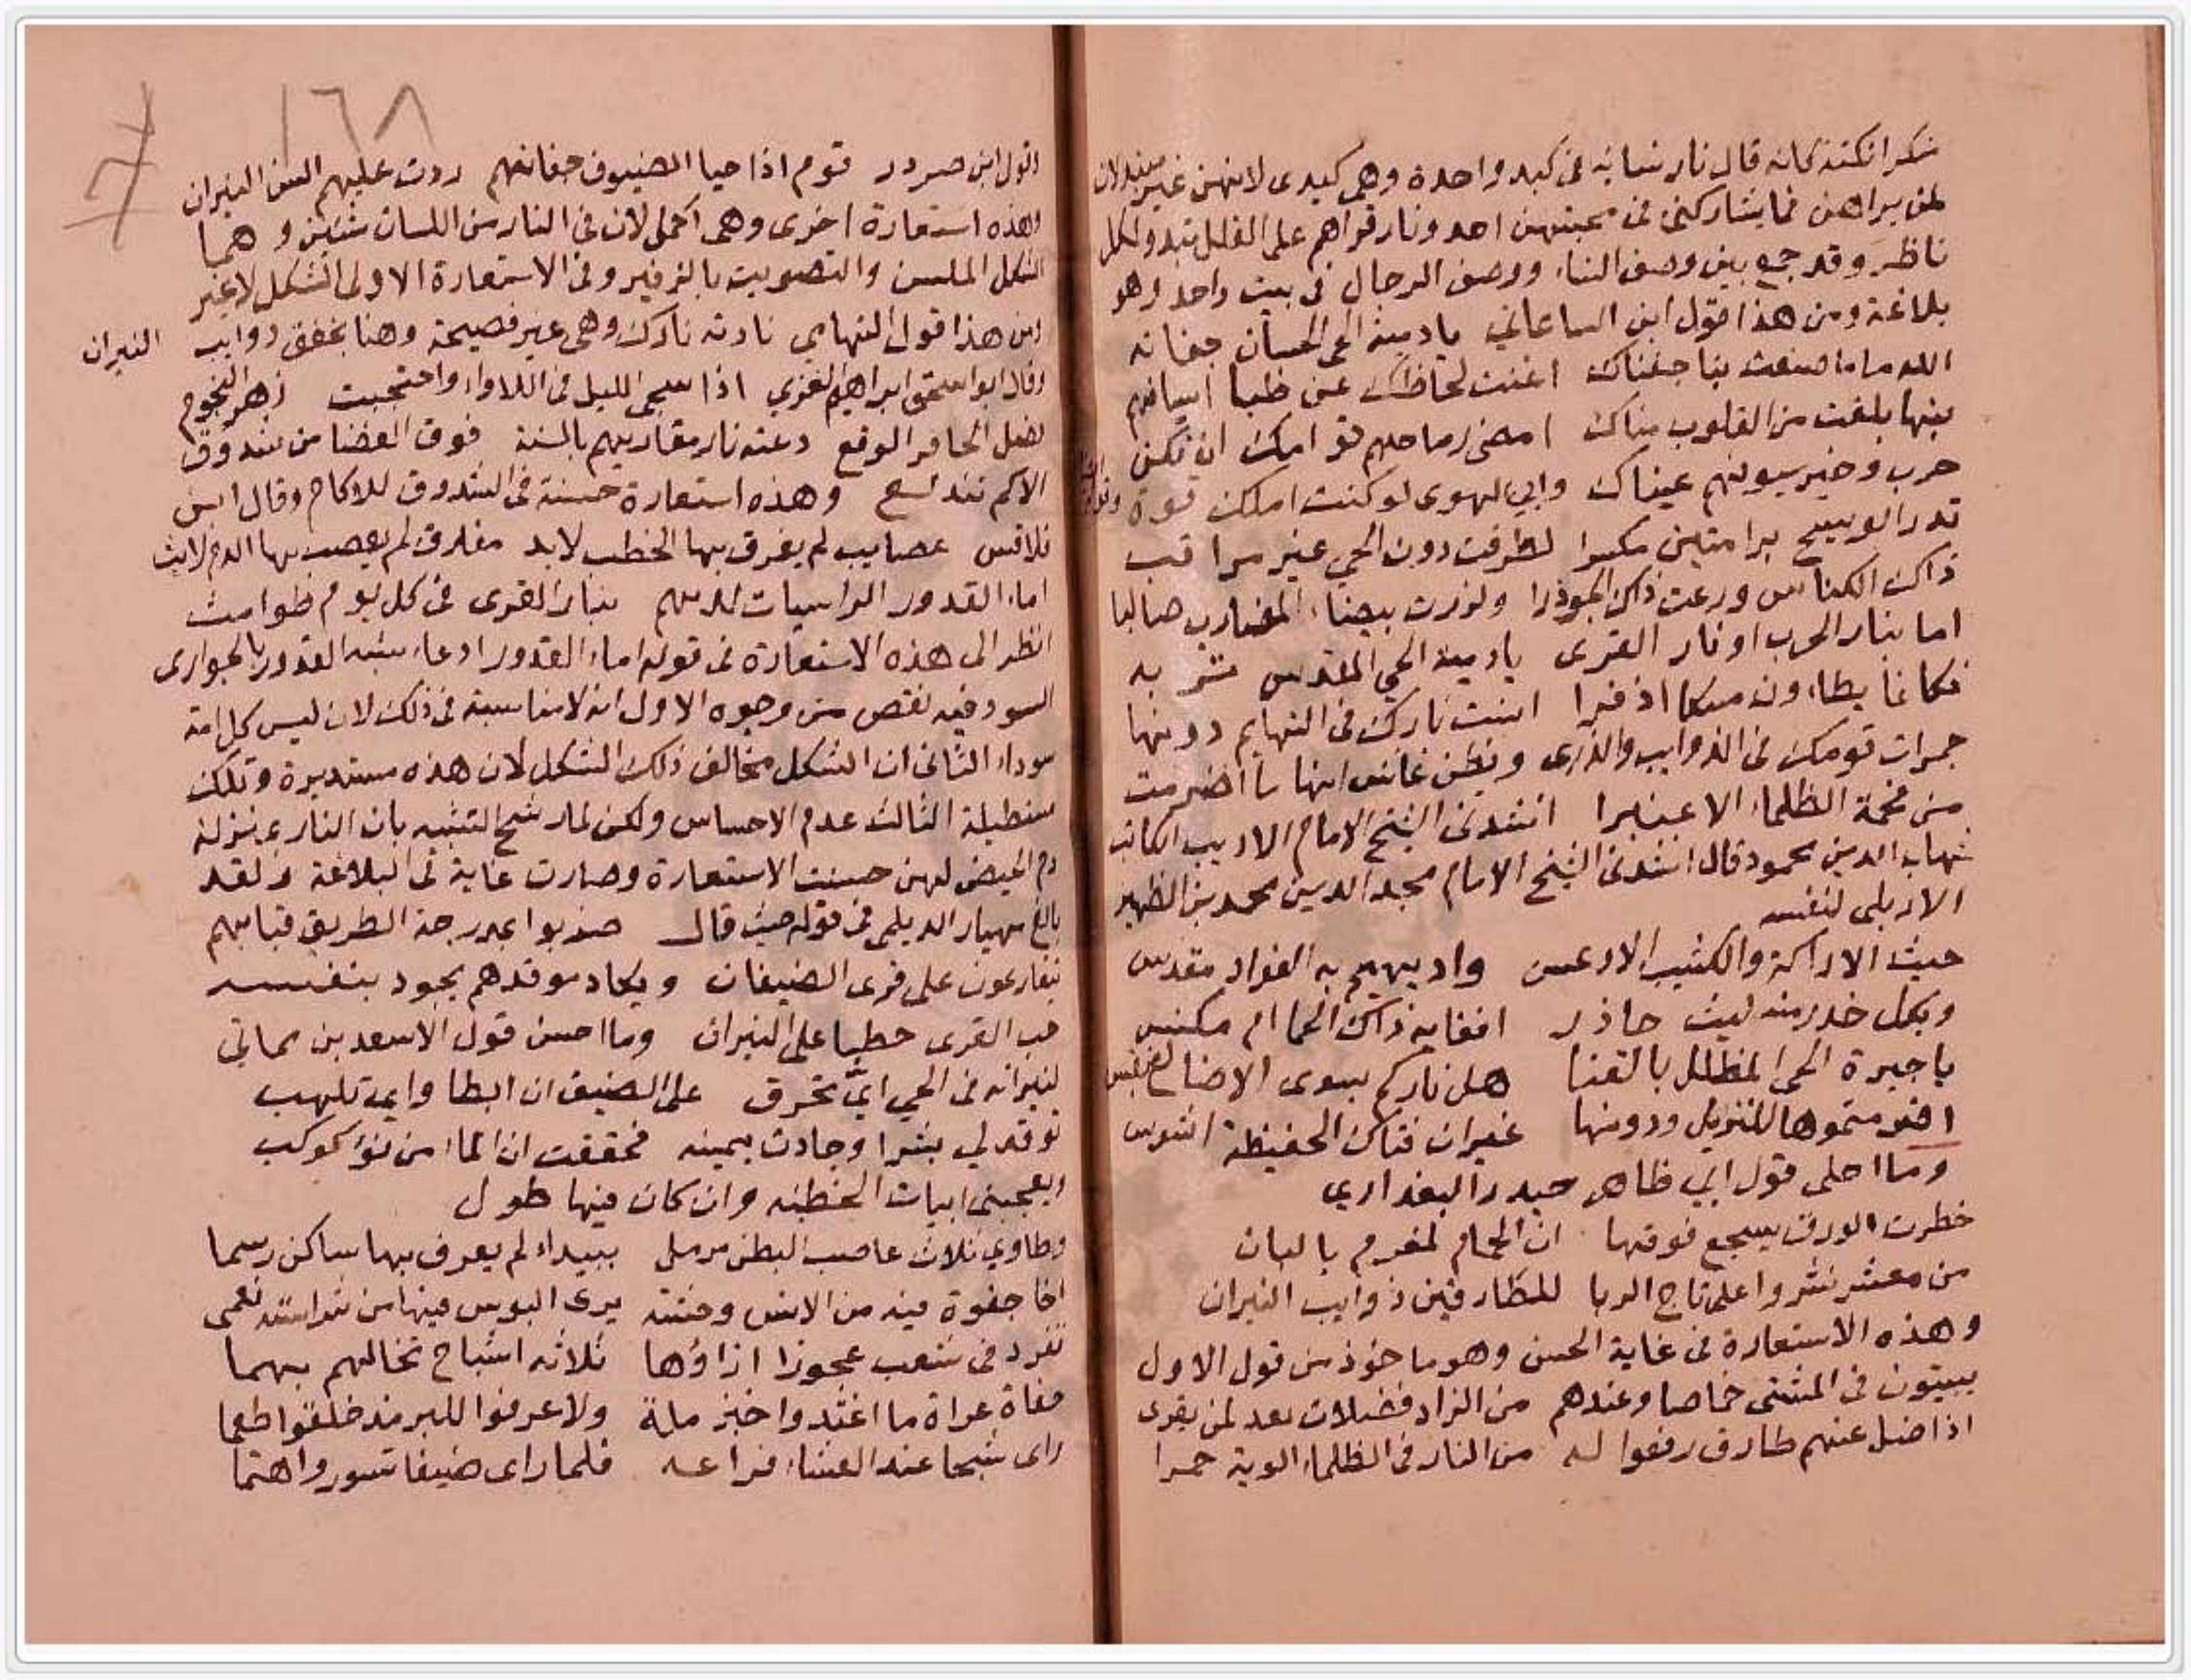 نكرا نكتة كانه قال نار نسائه فى كبد واحدة وهى كبدى لانهن غير مبتذلات
لمن يراهن فما يشاركنى فى محبتهن احد ونار قراهم على القلل تبدو لكل
ناظر وقد جمع بين وصف النساء ووصف الرجال فى بيت واحد وهو
بلاغة ومن هذا قول ابن الساعاتي يا دمية الحى الحسان جفانه
الله ما ذا صنعت بنا جفناك اغنت لحاظك عن ظبا اسيافهم
بنها بلغت من القلوب مناك امضى رماحهم قوامك ان تكن
حرب وخير سيوفهم عيناك وابي الهوى لو كنت املك قوة
قدر الوسيح برامتين مكسرا لطرقت دون الحي غير مراقب
ذاك الكناس ورعت ذاك الجوذرا ولزرت بيضاء المضارب صاليا
اما بنار الحرب او نار القرى يا دمية الحي المقدس تربه
فكانما يطاون مسكا اذفرا اثنت نارك فى التهايم دونها
جمرات قومك فى الذوايب والذرى ويظن غانس انها ما اضرمت
من فحمة الظلماء الا عنبرا انشدنى الشيخ الامام الاديب الكاتب
شهاب الدين محمود قال انشدنى الشيخ الامام مجد الدين محمد بن الظهير
الاربلى لنفسه
حيث الاراكة والكثيب الاوعس واد يهيم به الفواد مقدس
وبكل خدر منه ليث خاذر افغابه ذاك الحما ام مكنس
يا جيرة الحى المظلل بالقنا هل ناركم بسوى الاضالع تقبس
اضرمتموها للنزيل ودونها غيران فتاك الحفيظة اشوس
وما احلى قول ابي ظاهر حيدر البغدادي
خطرت الورق يسجع فوقها ان الحمام لمغرم بالبان
من معشر نشروا على تاج الربا للطارقين ذوايب النيران
وهذه الاستعارة فى غاية الحسن وهو ماخوذ من قول الاول
يبيتون فى المشتى خماصا وعندهم من الزاد فضلات تعد لمن يقرى
اذا ضل عنهم طارق رفعوا له من النار فى الظلماء الوية حمرا
١٦٨
وقول ابن صردر قوم اذا حيا الضيوف جفانهم ردت عليهم السن النيران
وهذه استعارة اخرى وهى اكمل لان فى النار من اللسان شيئين وهما
الشكل الملسن والتصويت بالزفير وفى الاستعارة الاولى الشكل لا غير
ومن هذا قول التهامي نادته نارك وهى غير فصيحة وهنا بخفق ذوايب النيران
وقال ابو اسحق ابراهيم الغزي اذا سجى الليل فى اللاواء واحتجبت زهر النجوم
لفعل الحافر الوقع دعته نار مقاريهم بالسنة فوق الغضا من شدوق
الاكم تندلع وهذه استعارة حسنة فى الشدوق للاكام وقال ابن
قلاقس عصايب لم يغرق بها الخطب لابد مفارق لم يعصب بها الدم لايث
اماء القدور الراسيات لديهم بنار القرى فى كل يوم طوامث
انظر الى هذه الاستعارة فى قوله اماء القدور ادعاء شبه القدور بالجوارى
السود فيه نقص من وجوه الاول انه لا مناسبة فى ذلك لان ليس كل امة
سوداء الثانى ان الشكل مخالف ذلك الشكل لان هذه مستديرة وتلك
مستطيلة الثالث عدم الاحساس ولكن لما رشح التشبه بان النار بمنزلة
دم الحيض لهن حسنت الاستعارة وصارت غاية فى البلاغة ولقد
بالغ مهيار الديلمى فى قوله حيث قال ضربوا بمدرجة الطريق قبابهم
يتقارعون على قرى الضيفان ويكاد موقدهم يجود بنفسه
حب القرى حطبا على النيران وما احسن قول الاسعد بن مماتي
لنيرانه فى الحي اي تحرق على الضيف ان ابطا واي تلهب
توقد لي بشرا وجادت يمينه فحققت ان الماء من نوء كوكب
ويعجبنى ابيات الحطيئه وان كان فيها طول
وطاوي ثلاث عاصب البطن مرمل ببيداء لم يعرف بها ساكن رسما
اخا جفوة فيه من الانس وحشة يرى البوس فيها من شراسته نعمى
تفرد فى شعب عجوزا ازاؤها ثلاثه اشباح تخالهم بهما
حفاة عراة ما اغتدوا خبز ملة ولا عرفوا للبر مذ خلقوا طعما
راى شبحا عند العشاء فراعه فلما راى ضيفا تسور واهتما